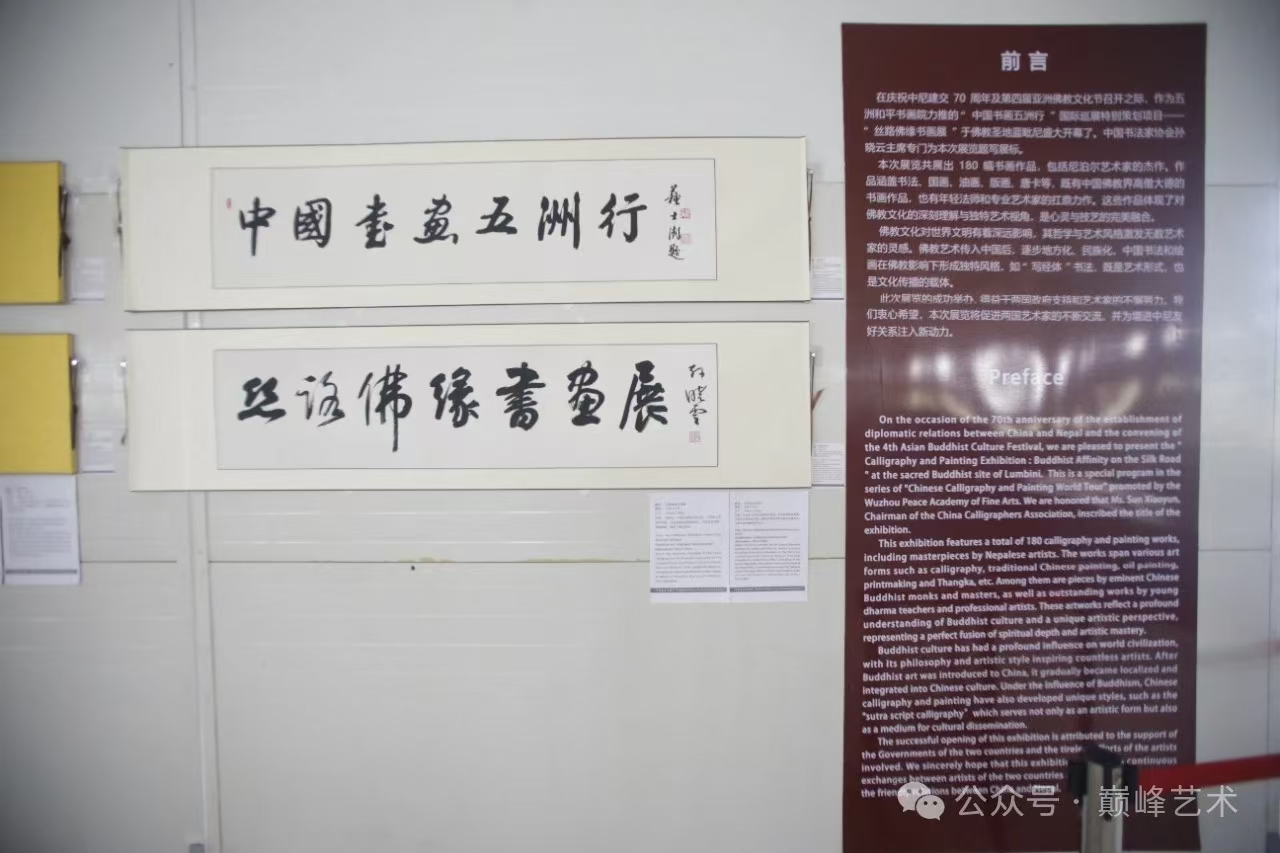 中國書畫五洲行
蘇士澍題
丝路佛缘書畫展
孙晓云
前言
在庆祝中尼建交 70 周年及第四届亚洲佛教文化节召开之际，作为五
洲和平书画院力推的“ 中国书画五洲行 ”国际巡展特别策划项目——
“ 丝路佛缘书画展 ”于佛教圣地蓝毗尼盛大开幕了。中国书法家协会孙
晓云主席专门为本次展览题写展标。
本次展览共展出 180 幅书画作品，包括尼泊尔艺术家的杰作。作
品涵盖书法、国画、油画、版画、唐卡等，既有中国佛教界高僧大德的
书画作品，也有年轻法师和专业艺术家的扛鼎力作。这些作品体现了对
佛教文化的深刻理解与独特艺术视角，是心灵与技艺的完美融合。
佛教文化对世界文明有着深远影响，其哲学与艺术风格激发无数艺术
家的灵感。佛教艺术传入中国后，逐步地方化、民族化，中国书法和绘
画在佛教影响下形成独特风格，如“ 写经体 ”书法，既是艺术形式，也
是文化传播的载体。
此次展览的成功举办，得益于两国政府支持和艺术家的不懈努力。我
们衷心希望，本次展览将促进两国艺术家的不断交流，并为增进中尼友
好关系注入新动力。
Preface
On the occasion of the 70th anniversary of the establishment of
diplomatic relations between China and Nepal and the convening of
the 4th Asian Buddhist Culture Festival, we are pleased to present the "
Calligraphy and Painting Exhibition : Buddhist Affinity on the Silk Road
" at the sacred Buddhist site of Lumbini. This is a special program in the
series of "Chinese Calligraphy and Painting World Tour" promoted by the
Wuzhou Peace Academy of Fine Arts. We are honored that Ms. Sun Xiaoyun,
Chairman of the China Calligraphers Association, inscribed the title of the
exhibition.
This exhibition features a total of 180 calligraphy and painting works,
including masterpieces by Nepalese artists. The works span various art
forms such as calligraphy, traditional Chinese painting, oil painting,
printmaking and Thangka, etc. Among them are pieces by eminent Chinese
Buddhist monks and masters, as well as outstanding works by young
dharma teachers and professional artists. These artworks reflect a profound
understanding of Buddhist culture and a unique artistic perspective,
representing a perfect fusion of spiritual depth and artistic mastery.
Buddhist culture has had a profound influence on world civilization,
with its philosophy and artistic style inspiring countless artists. After
Buddhist art was introduced to China, it gradually became localized and
integrated into Chinese culture. Under the influence of Buddhism, Chinese
calligraphy and painting have also developed unique styles, such as the
"sutra script calligraphy" which serves not only as an artistic form but also
as a medium for cultural dissemination.
The successful opening of this exhibition is attributed to the support of
the Governments of the two countries and the efforts of the artists
involved. We sincerely hope that this continuous
exchanges between artists of the two countries
the between China and
公众号 · 巅峰艺术